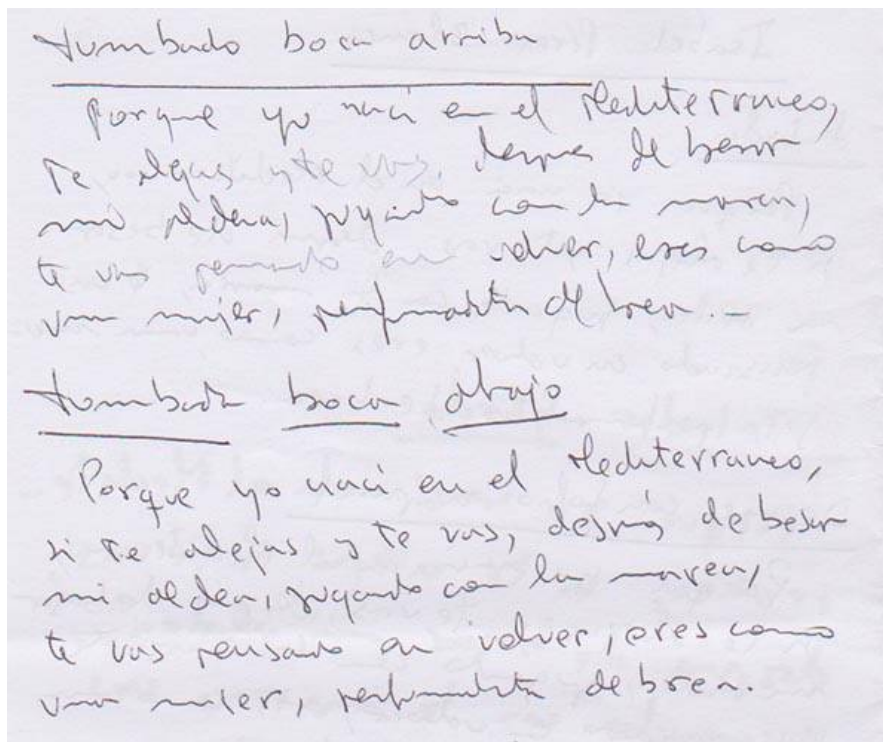 tumbado boca arriba
Porque yo naci en el Mediterraneo,
Te alejas y te vas, despues de besar
mi aldea, jugando con la marea,
te vas pensando en volver, eres como
una mujer, perfumadita de brea.-
tumbada boca abajo
Porque yo naci en el Mediterraneo,
si te alejas y te vas, después de besar
mi aldea, jugando con la marea,
te vas pensando en volver, eres como
una mujer, perfumadita de brea.